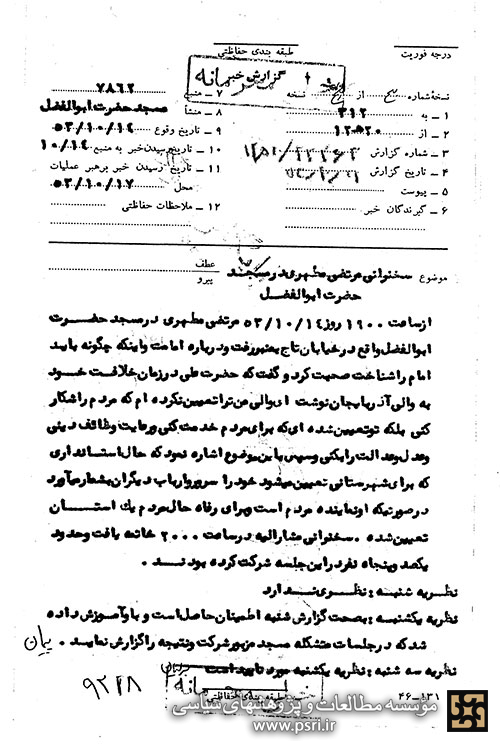 درجه فوریت
طبقه بندی حفاظتی
گزارش خبر
محرمانه
نسخه شماره از نسخه
۱ – به ۳۱۲
۲ – از ۲۰ ه‍ ۱۲
۳ – شماره گزارش
۴ – تاریخ گزارش
۵ – پیوست
۶ – گیرندگان خبر
۷ – منبع ۷۸۶۲
۸ – منشأ مسجد حضرت ابوالفضل
۹ – تاریخ وقوع ۵۳/۱۰/۱۴
۱۰ – تاریخ رسیدن خبر به منبع ۱۰/۱۴
۱۱ – تاریخ رسیدن خبر برهبر عملیات
محل ۵۳/۱۰/۱۷
۱۲ – ملاحظات حفاظتی
موضوع سخنرانی مرتضی مطهری در مسجد
حضرت ابوالفضل
عطف
پیرو
از ساعت ۱۹۰۰ روز ۵۳/۱۰/۱۴ مرتضی مطهری در مسجد حضرت
ابوالفضل واقع در خیابان تاج بمنبر رفت و درباره امامت و اینکه چگونه باید
امام را شناخت صحبت کرد و گفت که حضرت علی در زمان خلافت خود
به والی آذربایجان نوشت ای والی من ترا تعیین نکرده ام که مردم را شکار
کنی بلکه تو تعیین شده ای که برای مردم خدمت کنی و رعایت وظائف دینی
و عدل وعدالت را بکنی و سپس باین موضوع اشاره نمود که حال استانداری
که برای شهرستانی تعیین میشود خود را سرور و ارباب دیگران بشمار میآورد
در صورتیکه او نماینده مردم است و برای رفاه حال مردم یک استان
تعیین شده . سخنرانی مشارالیه در ساعت ۲۰۰۰ خاتمه یافت و حدود
یکصد و پنجاه نفر در این جلسه شرکت کرده بودند .
نظریه شنبه : نظری ندارد
نظریه یکشنبه : بصحت گزارش شنبه اطمینان حاصل است و باو آموزش داده
شد که در جلسات متشکله مسجد مزبور شرکت و نتیجه را گزارش نماید .
نظریه سه شنبه : نظریه یکشنبه مورد تایید است
محرمانه
طبقه بندی حفاظتی
۹۲۲۸
۴۶–۱۳۱
موسسه مطالعات و پژوهشهای سیاسی
www.psri.ir